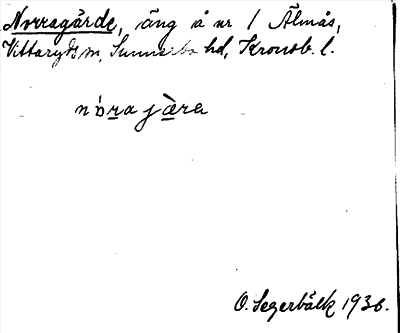 Norragärde, äng å nr 1 Älmås,
Vittaryds sn, Sunnerbo hd, Kronob. l.
nòra jàra
O. Segerbälk 1936.